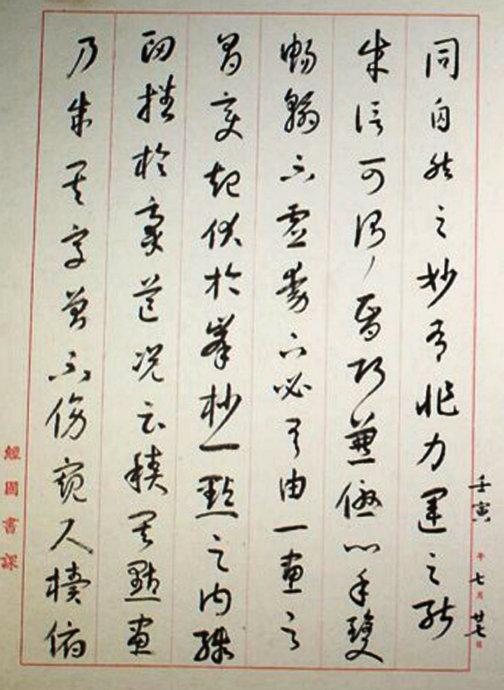 同自然之妙有非力運之能
成信可謂智巧兼優心手雙
暢翰不虛動下必有由一畫之
間變起伏於峯杪一點之內殊
衄挫於豪芒況云積其點畫
乃成其字曾不傍窺尺牘俯
壬寅年七月廿七日
經國書課